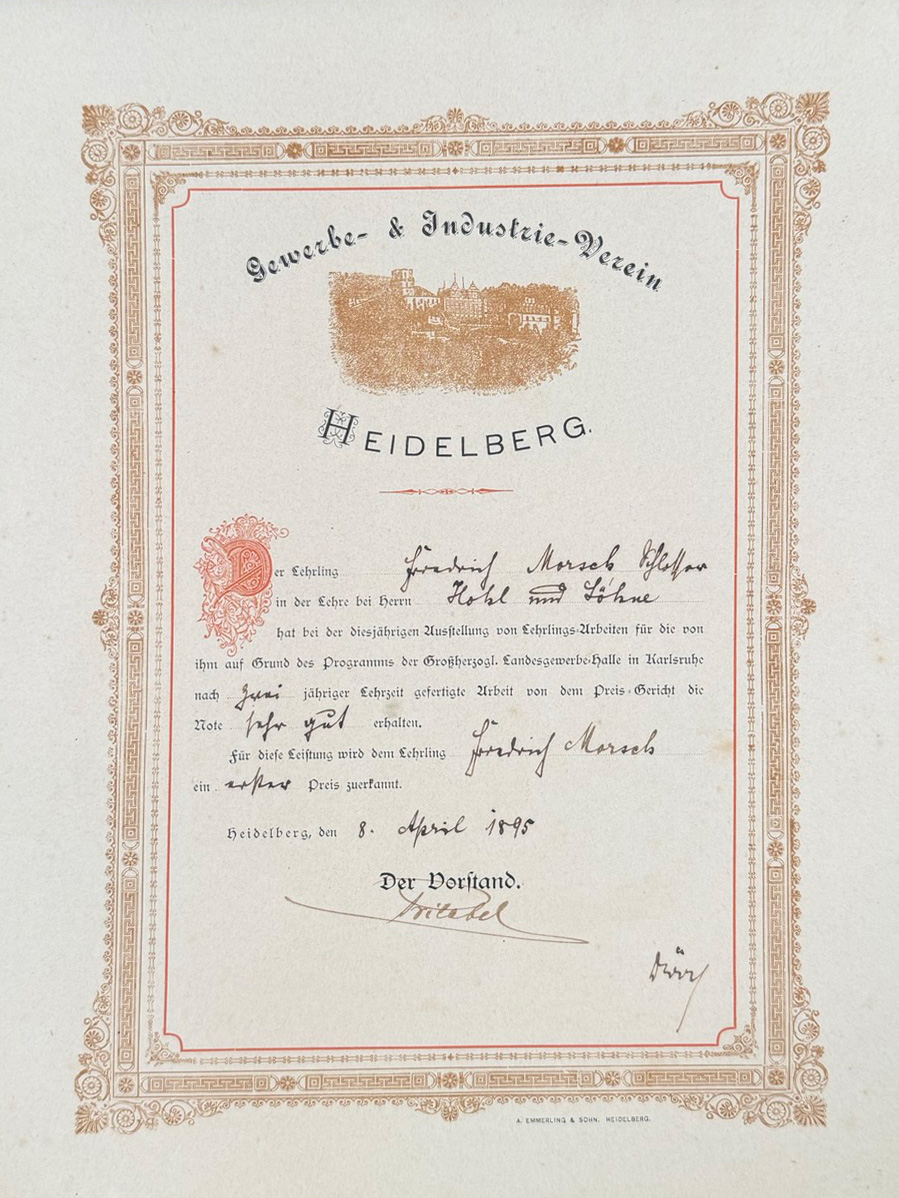 Gewerbe- & Industrie-Verein
HEIDELBERG.
Der Lehrling Friedrich Morsch Schlosser
in der Lehre bei Herrn und Söhne
hat bei der diesjährigen Ausstellung von Lehrlings-Arbeiten für die von
ihm auf Grund des Programms der Großherzogl. Landesgewerbe-Halle in Karlsruhe
nach zwei jähriger Lehrzeit gefertigte Arbeit von dem Preis-Gericht die
Note sehr gut erhalten.
Für diese Leistung wird dem Lehrling Friedrich Morsch
ein erster Preis zuerkannt.
Heidelberg, den 8. April 1895
Der Vorstand.
A. EMMERLING & SOHN, HEIDELBERG.